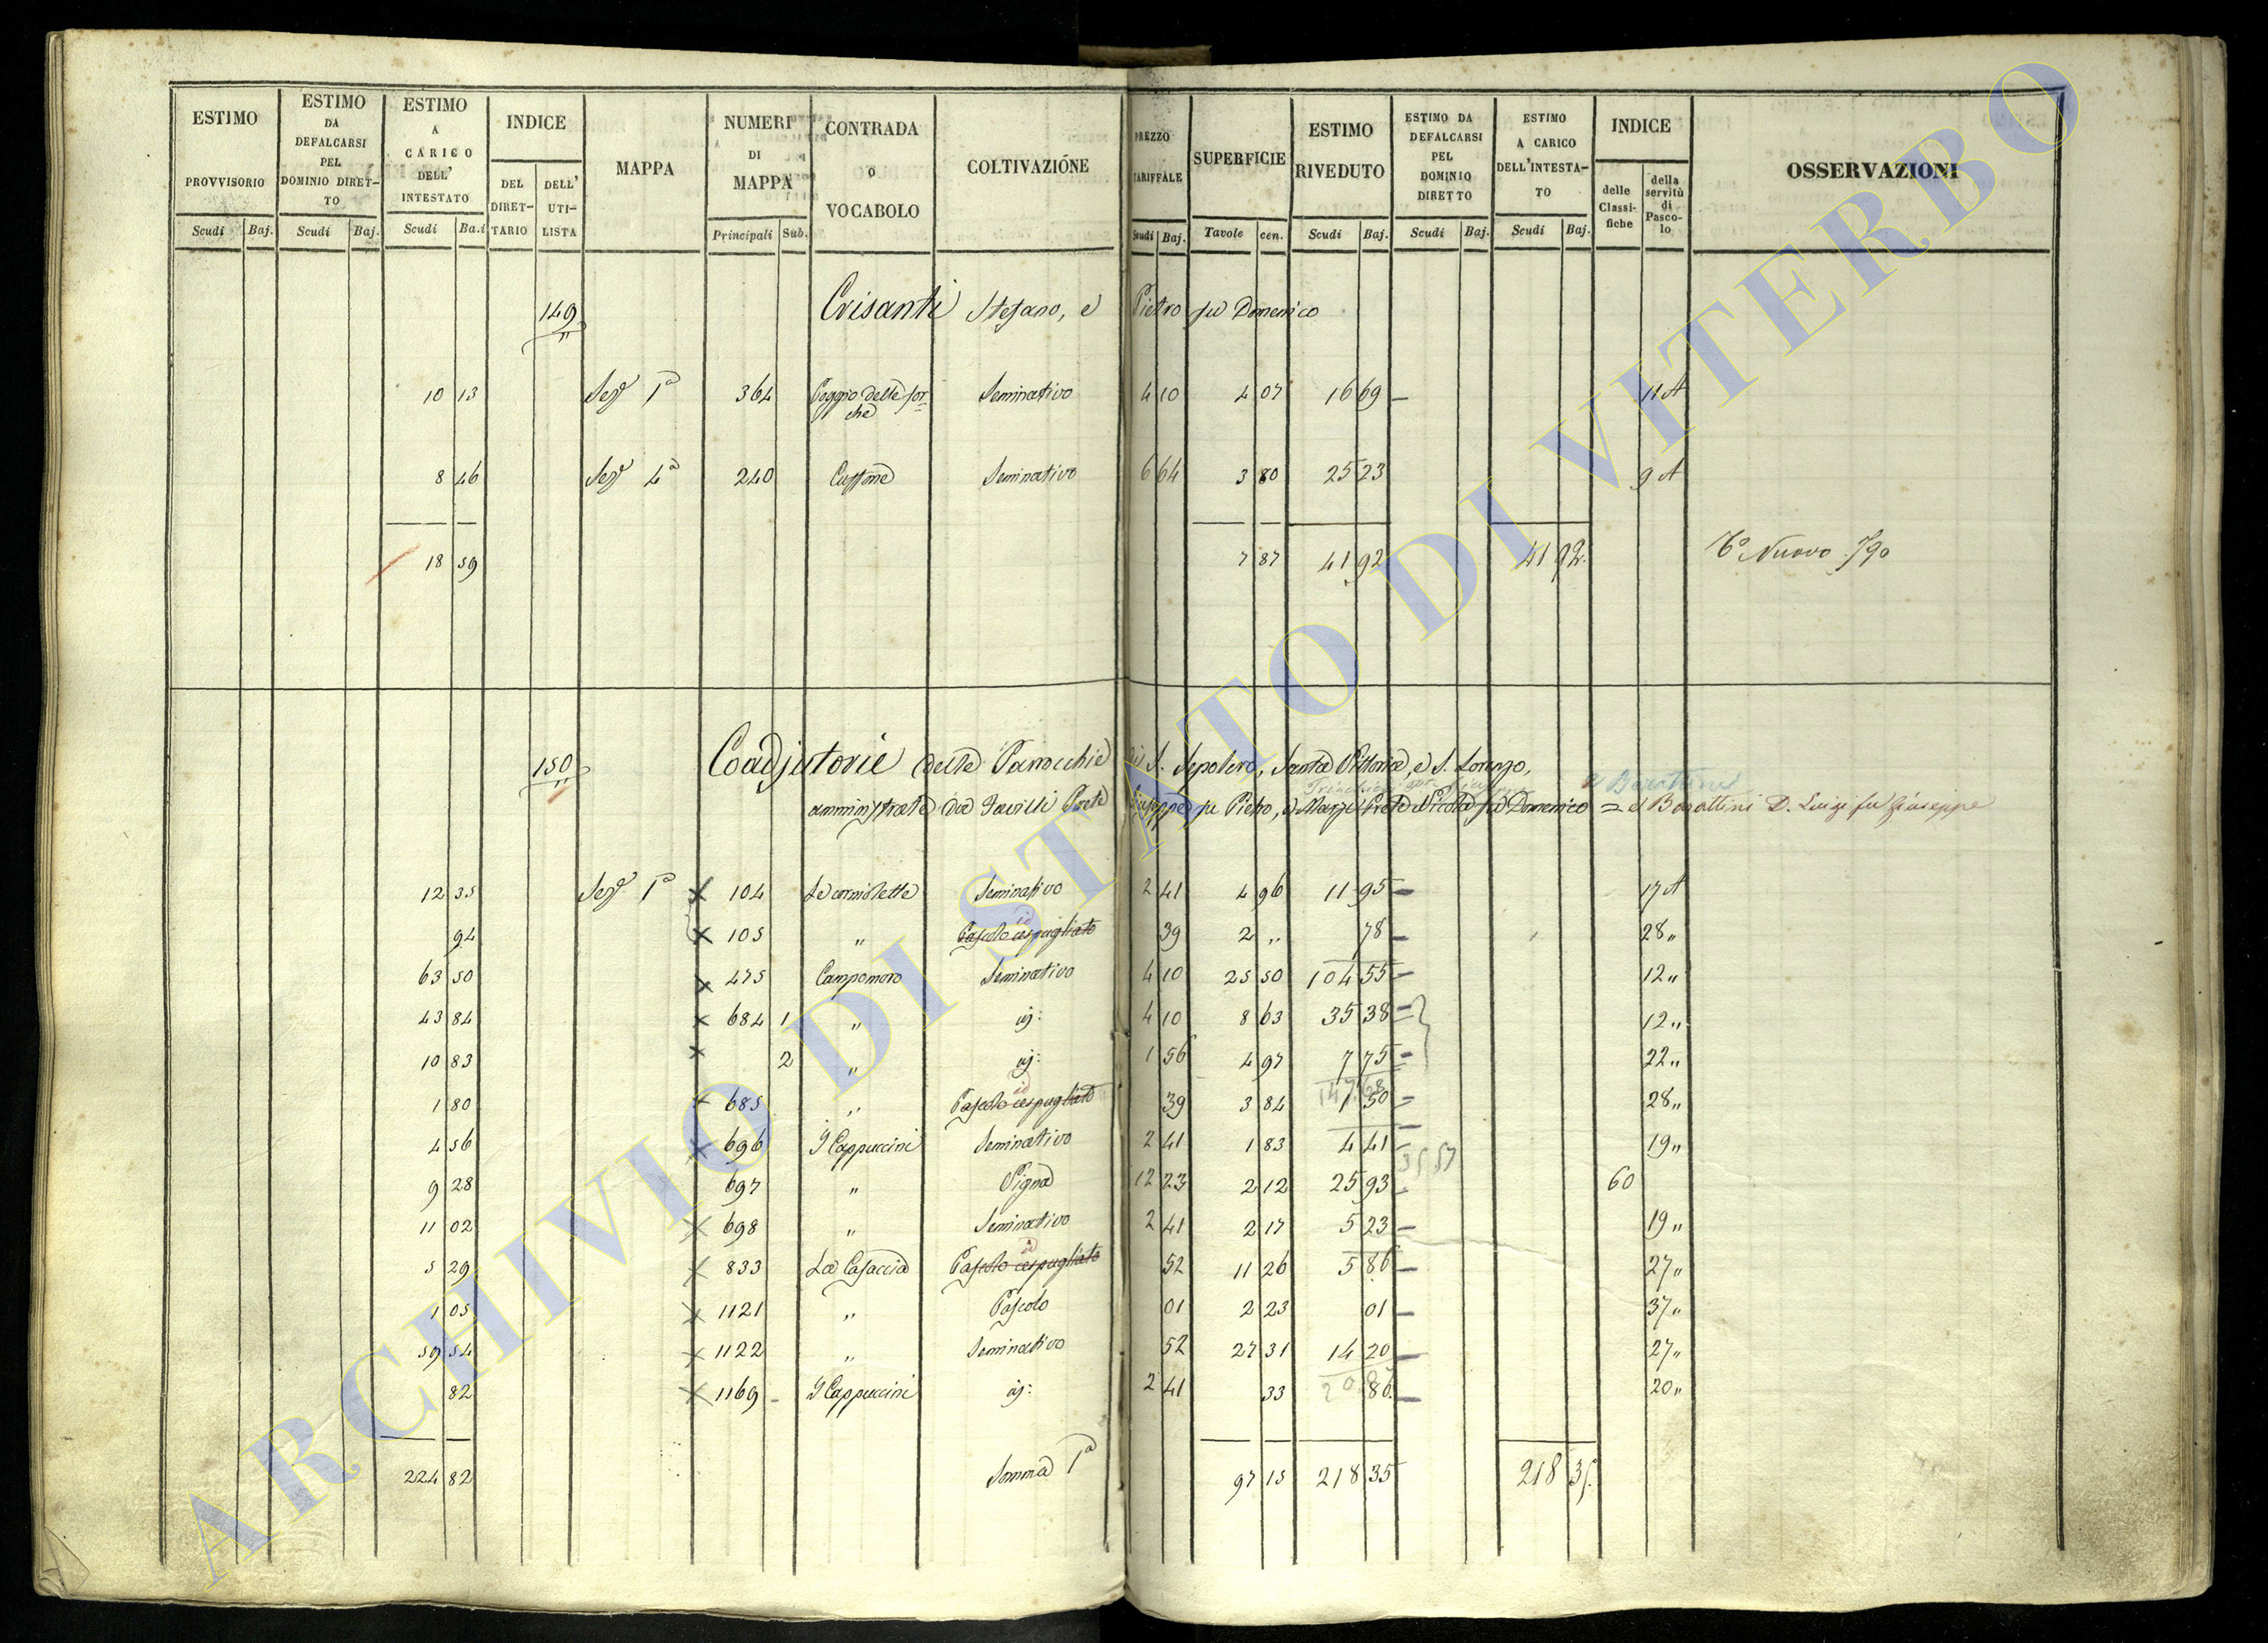 ESTIMO PROVVISORIO
ESTIMO DA DEFALCARSI PEL DOMINIO DIRET-TO
ESTIMO A CARICO DELL' INTESTATO
INDICE
DEL DIRET-TARIO
DELL' UTI-LISTA
MAPPA
NUMERI DI MAPPA
CONTRADA O VOCABOLO
COLTIVAZIONE
PREZZO TARIFFALE
SUPERFICIE
ESTIMO RIVEDUTO
ESTIMO DA DEFALCARSI PEL DOMINIO DIRETTO
ESTIMO A CARICO DELL'INTESTA-TO
INDICE
delle Classi-fiche
della servitù di Pasco-lo
OSSERVAZIONI
Scudi Baj. Scudi Baj. Scudi Ba.i Principali Sub. Scudi Baj. Tavole cen. Scudi Baj. Scudi Baj. Scudi Baj.
149 Crisanti Stefano, e Pietro fu Domenico
10 13 Sez.e 1a 364 Poggio delle for-che Seminativo 4 10 4 07 16 69 11 A
8 46 Sez.e 4a 240 Seminativo 6 64 3 80 25 23 9 A
18 59 7 87 41 92 41 92 Nuovo 790
150 Coadjutorie delle Parrocchie di S. Sepolcro, Santa Vittoria, e S. Lorenzo,
amministrate da Prete Giuseppe fu Pietro, e Prete Nicola fu Domenico = e Bagattini D. Luigi fu Giuseppe
12 35 Sez.e 1a X 104 Le corniolette Seminativo 2 41 4 96 11 95 17 A
94 X 105 " Pascolo cespugliato id 39 2 " 78 28 "
63 50 X 475 Campomoro Seminativo 4 10 25 50 104 55 12 "
43 84 X 684 1 " id: 4 10 8 63 35 38 12 "
10 83 X 2 " id: 1 56 4 97 7 75 22 "
1 80 X 685 " Pascolo cespugliato id 39 3 84 1 50 28 "
4 56 X 696 I Cappuccini Seminativo 2 41 1 83 4 41 19 "
9 28 697 " Vigna 12 23 2 12 25 93 60
11 02 X 698 " Seminativo 2 41 2 17 5 23 19 "
5 29 X 833 La Casaccia Pascolo cespugliato id 52 11 26 5 86 27 "
1 05 X 1121 " Pascolo 01 2 23 01 37 "
59 54 X 1122 " Seminativo 52 27 31 14 20 27 "
82 X 1169 I Cappuccini id: 2 41 33 80 20 "
224 82 Somma 1a 97 15 218 35 218 35
ARCHIVIO DI STATO DI VITERBO